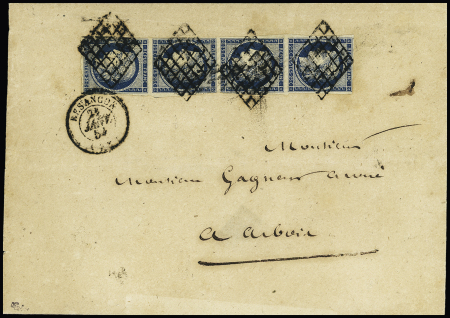 BESANÇON
24
JANV.
Monsieur
Monsieur Gagneur avoué
a arbois